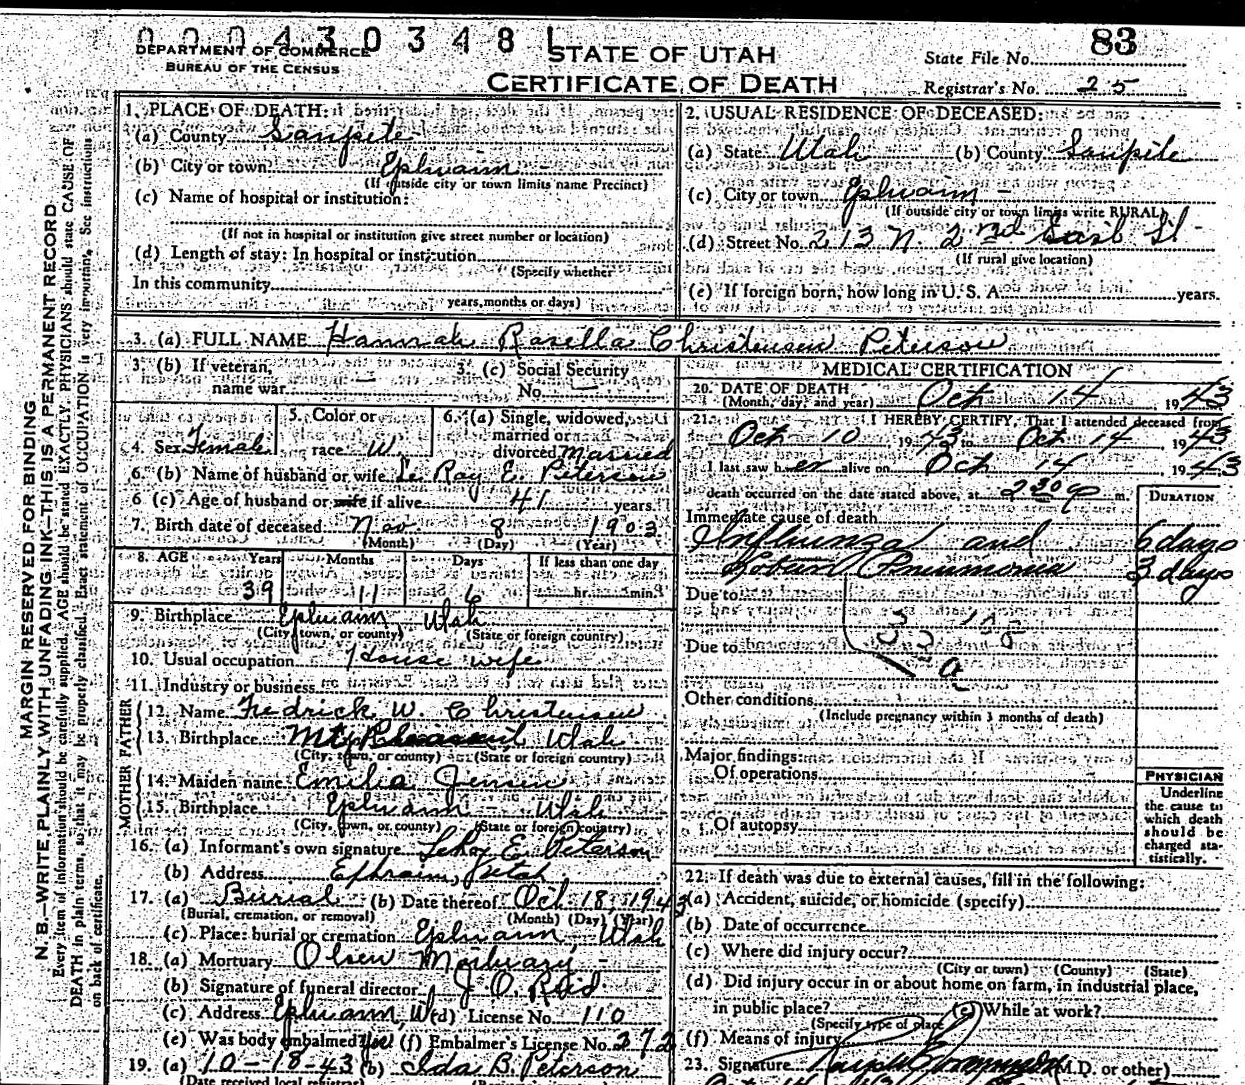 0 0 0 4 3 0 3 4 8 1
DEPARTMENT OF COMMERCE
BUREAU OF THE CENSUS
STATE OF UTAH
CERTIFICATE OF DEATH
State File No. 83
Registrar's No. 25
MARGIN RESERVED FOR BINDING
N. B.—WRITE PLAINLY WITH UNFADING INK—THIS IS A PERMANENT RECORD
Every item of information should be carefully supplied. AGE should be stated EXACTLY. PHYSICIANS should state CAUSE OF
DEATH in plain terms, so that it may be properly classified. Exact statement of OCCUPATION is very important. See instructions
on back of certificate.
1. PLACE OF DEATH:
(a) County Sanpete
(b) City or town Ephraim
(If outside city or town limits name Precinct)
(c) Name of hospital or institution:
(If not in hospital or institution give street number or location)
(d) Length of stay: In hospital or institution
(Specify whether
In this community
years, months or days)
2. USUAL RESIDENCE OF DECEASED:
(a) State Utah (b) County Sanpete
(c) City or town Ephraim
(If outside city or town limits write RURAL)
(d) Street No. 213 N. 2nd East St
(If rural give location)
(e) If foreign born, how long in U. S. A. years.
3. (a) FULL NAME Hannah Rosella Christensen Peterson
3. (b) If veteran,
name war —
3. (c) Social Security
No. —
4. Sex Female
5. Color or
race W.
6. (a) Single, widowed,
married or
divorced Married
6. (b) Name of husband or wife Le Roy E. Peterson
6 (c) Age of husband or wife if alive 41 years.
7. Birth date of deceased Nov 8 1903
(Month) (Day) (Year)
8. AGE Years Months Days If less than one day
39 11 6 hr. min.
9. Birthplace Ephraim Utah
(City, town, or county) (State or foreign country)
10. Usual occupation House wife
11. Industry or business
FATHER
12. Name Fredrick W. Christensen
13. Birthplace Mt Pleasant Utah
(City, town, or county) (State or foreign country)
MOTHER
14. Maiden name Emilia Jensen
15. Birthplace Ephraim Utah
(City, town, or county) (State or foreign country)
16. (a) Informant's own signature LeRoy E. Peterson
(b) Address Ephraim, Utah
17. (a) Burial (b) Date thereof Oct 18, 1943
(Burial, cremation, or removal) (Month) (Day) (Year)
(c) Place: burial or cremation Ephraim, Utah
18. (a) Mortuary Olsen Mortuary
(b) Signature of funeral director
(c) Address Ephraim, U (d) License No. 110
(e) Was body embalmed? yes (f) Embalmer's License No. 272
19. (a) 10-18-43 (b) Ida B. Peterson
(Date received local registrar)
MEDICAL CERTIFICATION
20. DATE OF DEATH Oct 14 1943
(Month, day, and year)
21. I HEREBY CERTIFY, That I attended deceased from
Oct 10 1943 to Oct 14 1943
I last saw her alive on Oct 14, 1943
death occurred on the date stated above, at 2:30 P m.
DURATION
Immediate cause of death
Influenza and 6 days
Lobar Pneumonia 3 days
Due to
108
33a
Due to
Other conditions
(Include pregnancy within 3 months of death)
Major findings:
Of operations
Of autopsy
PHYSICIAN
Underline
the cause to
which death
should be
charged sta-
tistically.
22. If death was due to external causes, fill in the following:
(a) Accident, suicide, or homicide (specify)
(b) Date of occurrence
(c) Where did injury occur?
(City or town) (County) (State)
(d) Did injury occur in or about home on farm, in industrial place,
in public place? (e) While at work?
(Specify type of place)
(f) Means of injury
23. Signature (M.D. or other)